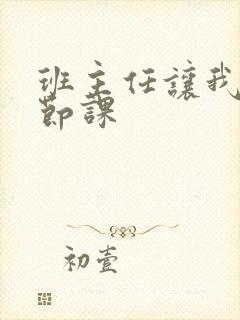 班主任讓我
節課
初壹